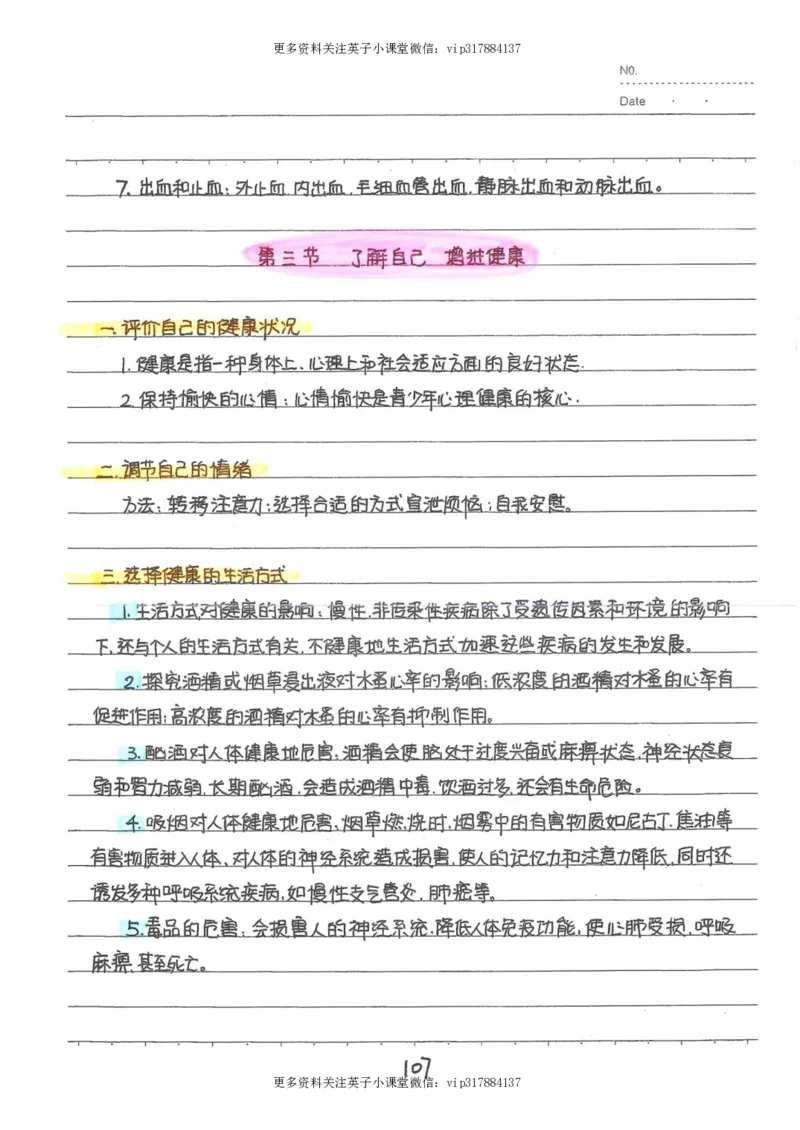 更多资料关注英子小课堂微信：vip317884137
NO.
Date
7. 出血和止血：外止血、内出血、毛细血管出血、静脉出血和动脉出血。
第三节 了解自己 增进健康
一. 评价自己的健康状况
1. 健康是指一种身体上、心理上和社会适应方面的良好状态.
2. 保持愉快的心情；心情愉快是青少年心理健康的核心.
二. 调节自己的情绪
方法：转移注意力；选择合适的方式宣泄烦恼；自我安慰。
三. 选择健康的生活方式
1. 生活方式对健康的影响：慢性、非传染性疾病除了受遗传因素和环境的影响
下,还与个人的生活方式有关,不健康地生活方式加速这些疾病的发生和发展。
2. 探究酒精或烟草浸出液对水蚤心率的影响：低浓度的酒精对水蚤的心率有
促进作用；高浓度的酒精对水蚤的心率有抑制作用。
3. 酗酒对人体健康地危害：酒精会使脑处于过度兴奋或麻痹状态,神经状态衰
弱和智力减弱,长期酗酒,会造成酒精中毒,饮酒过多,还会有生命危险。
4. 吸烟对人体健康地危害：烟草燃烧时,烟雾中的有害物质如尼古丁、焦油等
有害物质进入人体、对人体的神经系统造成损害,使人的记忆力和注意力降低,同时还
诱发多种呼吸系统疾病,如慢性支气管炎、肺癌等。
5. 毒品的危害：会损害人的神经系统,降低人体免疫功能,使心肺受损,呼吸
麻痹,甚至死亡。
107
更多资料关注英子小课堂微信：vip317884137